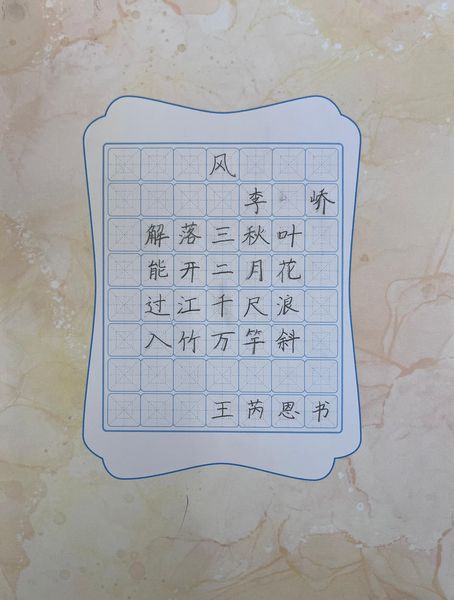 风
李 峤
解落三秋叶
能开二月花
过江千尺浪
入竹万竿斜
王芮恩书